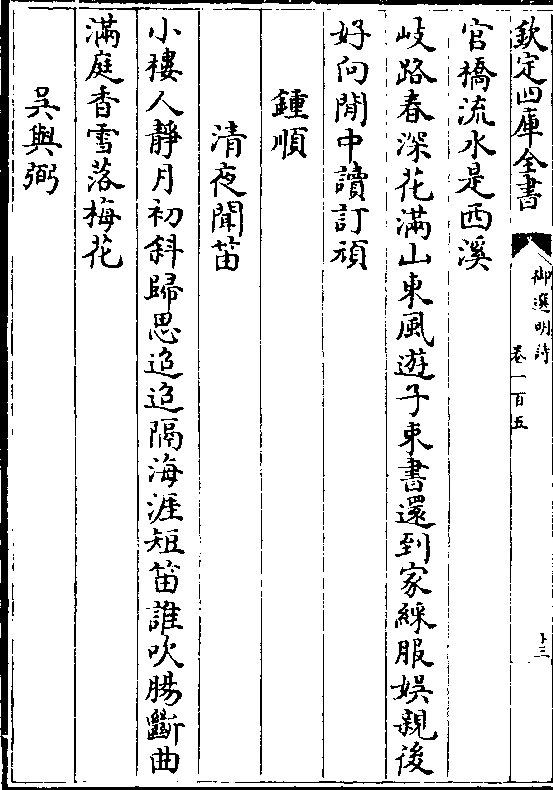 欽定四庫全書
御選明詩
卷一百五
十三
官橋流水是西溪
岐路春深花滿山東風遊子束書還到家綵服娱親後
好向閒中讀訂頑
鍾順
清夜聞笛
小樓人靜月初斜歸思迢迢隔海涯短笛誰吹腸斷曲
滿庭香雪落梅花
吳與弼